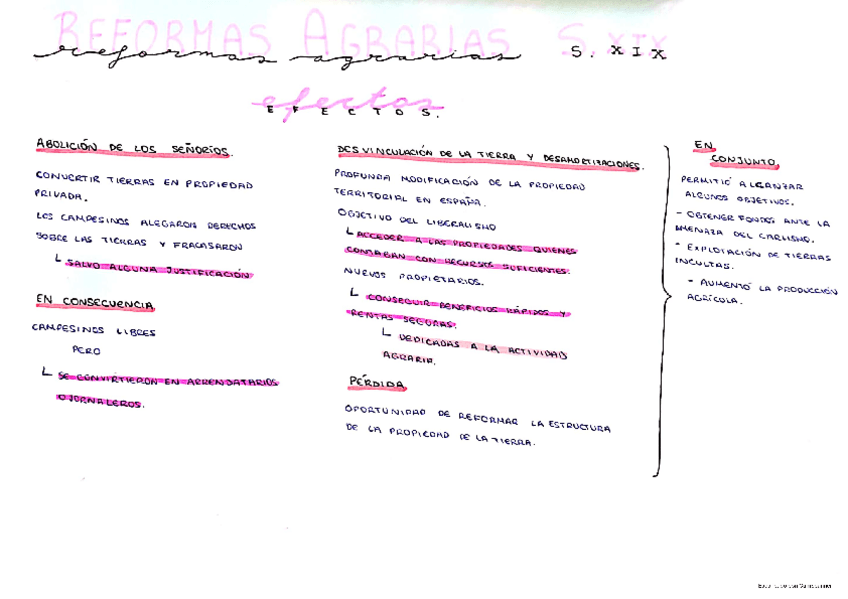 REFORMAS AGRARIAS S.XIX
reformas agrarias S. XIX
efectos
EFECTOS.
ABOLICIÓN DE LOS SEÑORÍOS.
CONVERTIR TIERRAS EN PROPIEDAD
PRIVADA.
LOS CAMPESINOS ALEGARON DERECHOS
SOBRE LAS TIERRAS Y FRACASARON
SALVO ALGUNA JUSTIFICACIÓN
EN CONSECUENCIA
CAMPESINOS LIBRES
PERO
SE CONVIRTIERON EN ARRENDATARIOS
O JORNALEROS.
DESVINCULACIÓN DE LA TIERRA Y DESAMORTIZACIONES.
PROFUNDA MODIFICACIÓN DE LA PROPIEDAD
TERRITORIAL EN ESPAÑA.
OBJETIVO DEL LIBERALISMO
ACCEDER A LAS PROPIEDADES QUIENES
CONTABAN CON RECURSOS SUFICIENTES.
NUEVOS PROPIETARIOS.
CONSEGUIR BENEFICIOS RÁPIDOS Y
RENTAS SEGURAS.
DEDICADAS A LA ACTIVIDAD
AGRARIA.
PÉRDIDA
OPORTUNIDAD DE REFORMAR LA ESTRUCTURA
DE LA PROPIEDAD DE LA TIERRA.
EN
CONJUNTO,
PERMITIÓ ALCANZAR
ALGUNOS OBJETIVOS.
- OBTENER FONDOS ANTE LA
AMENAZA DEL CARLISMO.
- EXPLOTACIÓN DE TIERRAS
INCULTAS.
- AUMENTÓ LA PRODUCCIÓN
AGRÍCOLA.